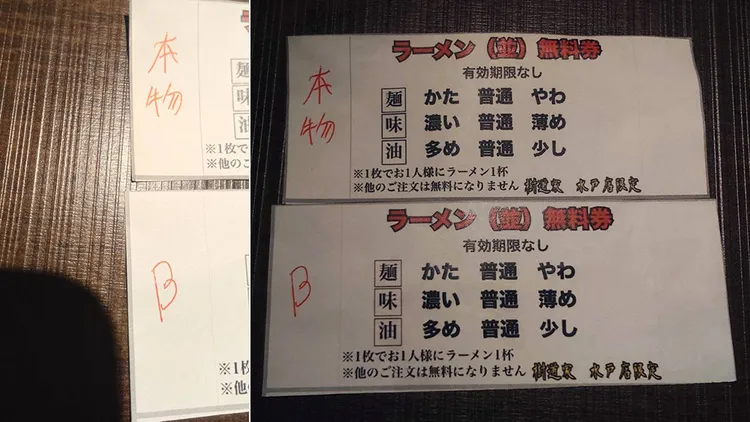 本物
麺
味
油
※1枚でお
※他のご
B
※1枚
※他
本物
ラーメン（並）無料券
有効期限なし
麺 かた 普通 やわ
味 濃い 普通 薄め
油 多め 普通 少し
※1枚でお1人様にラーメン1杯
※他のご注文は無料になりません 樹道家 水戸店限定
B
ラーメン（並）無料券
有効期限なし
麺 かた 普通 やわ
味 濃い 普通 薄め
油 多め 普通 少し
※1枚でお1人様にラーメン1杯
※他のご注文は無料になりません 樹道家 水戸店限定